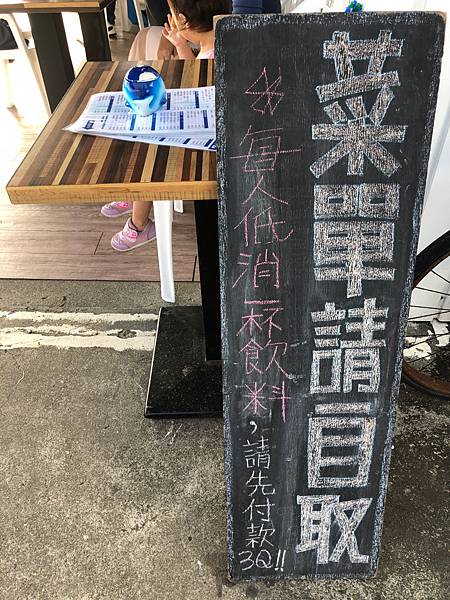 菜單請自取
※每人低消一杯飲料，請先付款 3Q!!